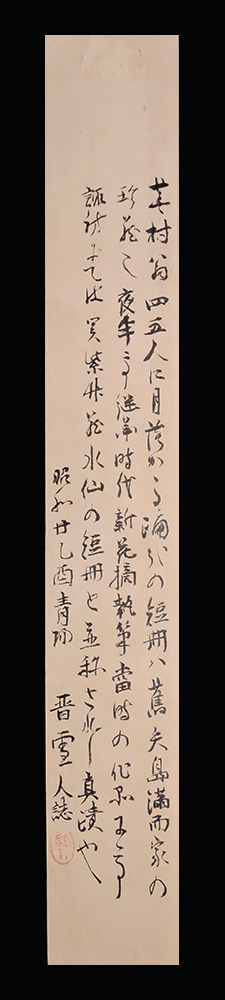 蕪村翁四五人に月落かゝる踊哉の短冊ハ舊矢島滿而家の
珍蔵之夜半亭継承時代新花摘執筆當時の作品にして
諏訪にては蔵水仙の短冊と並称されし真蹟也
昭和廿乙酉青陽 晋雪人誌